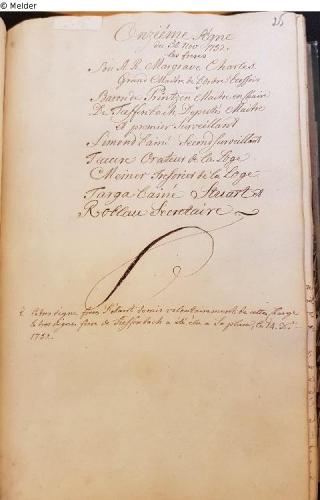 © Melder
Onzième Séme
du 30 Nov: 1752.
les freres
Son A. R. Margrave Charles
Grand Maitre de l'ordre
Baron de Printzen Maitre en chaire
De Tieffenbach Deputé Maitre
et premier Surveillant
Simond l'ainé Second Surveillant
Taure Orateur de la Loge
Meiner Tresorier de la Loge
Targa l'ainé Stuart et
Robleau Secretaire
frere s'étant demis volontairement de cette charge
frere de Tieffenbach a été élu a Sa place, le 14. Xbr
1752.